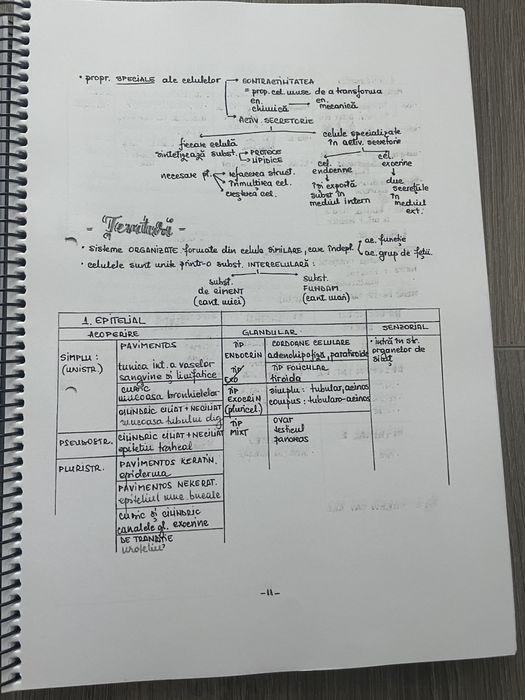 • propr. SPECIALE ale celulelor → CONTRACTILITATEA
= prop. cel. musc. de a transforma
en. chimică → en. mecanică
→ ACTIV. SECRETORIE
fiecare celulă
sintetizează subst. → PROTEICE
→ LIPIDICE
necesare pt. → refacerea struct.
→ înmulțirea cel.
→ creșterea cel.
celule specializate
în activ. secretorie
cel.
endocrine
↓
îm exportă
subst în
mediul intern
cel.
exocrine
↓
duc
secrețiile
în
mediul
ext.
- Țesuturi -
• sisteme ORGANIZATE formate din celule SIMILARE, care îndepl. ac. funcție
ac. grup de fcții
• celulele sunt unite printr-o subst. INTERCELULARĂ:
subst.
de CIMENT
(cant. mici)
subst.
FUNDAM
(cant. mari)
1. EPITELIAL
ACOPERIRE
GLANDULAR
SENZORIAL
SIMPLU:
(UNISTR.)
PAVIMENTOS
tunica int. a vaselor
sangvine și limfatice
CUBIC
mucoasa bronhiolelor
CILINDRIC CILIAT + NECILIAT
mucoasa tubului dig.
PSEUDOSTR.
CILINDRIC CILIAT + NECILIAT
epiteliu traheal
PLURISTR.
PAVIMENTOS KERATIN.
epiderma
PAVIMENTOS NEKERAT.
epiteliul muc. bucale
CUBIC și CILINDRIC
canalele gl. exocrine
DE TRANZIȚIE
uroteliu
TIP
ENDOCRIN
CORDOANE CELULARE
adenohipofiza, paratiroide
TIP FOLICULAR
tiroida
TIP
EXOCRIN
(pluricel.)
simplu: tubular, acinos
compus: tubulara-acinos
TIP
MIXT
ovar
testicul
pancreas
• intră în str.
organelor de
simț
-11-